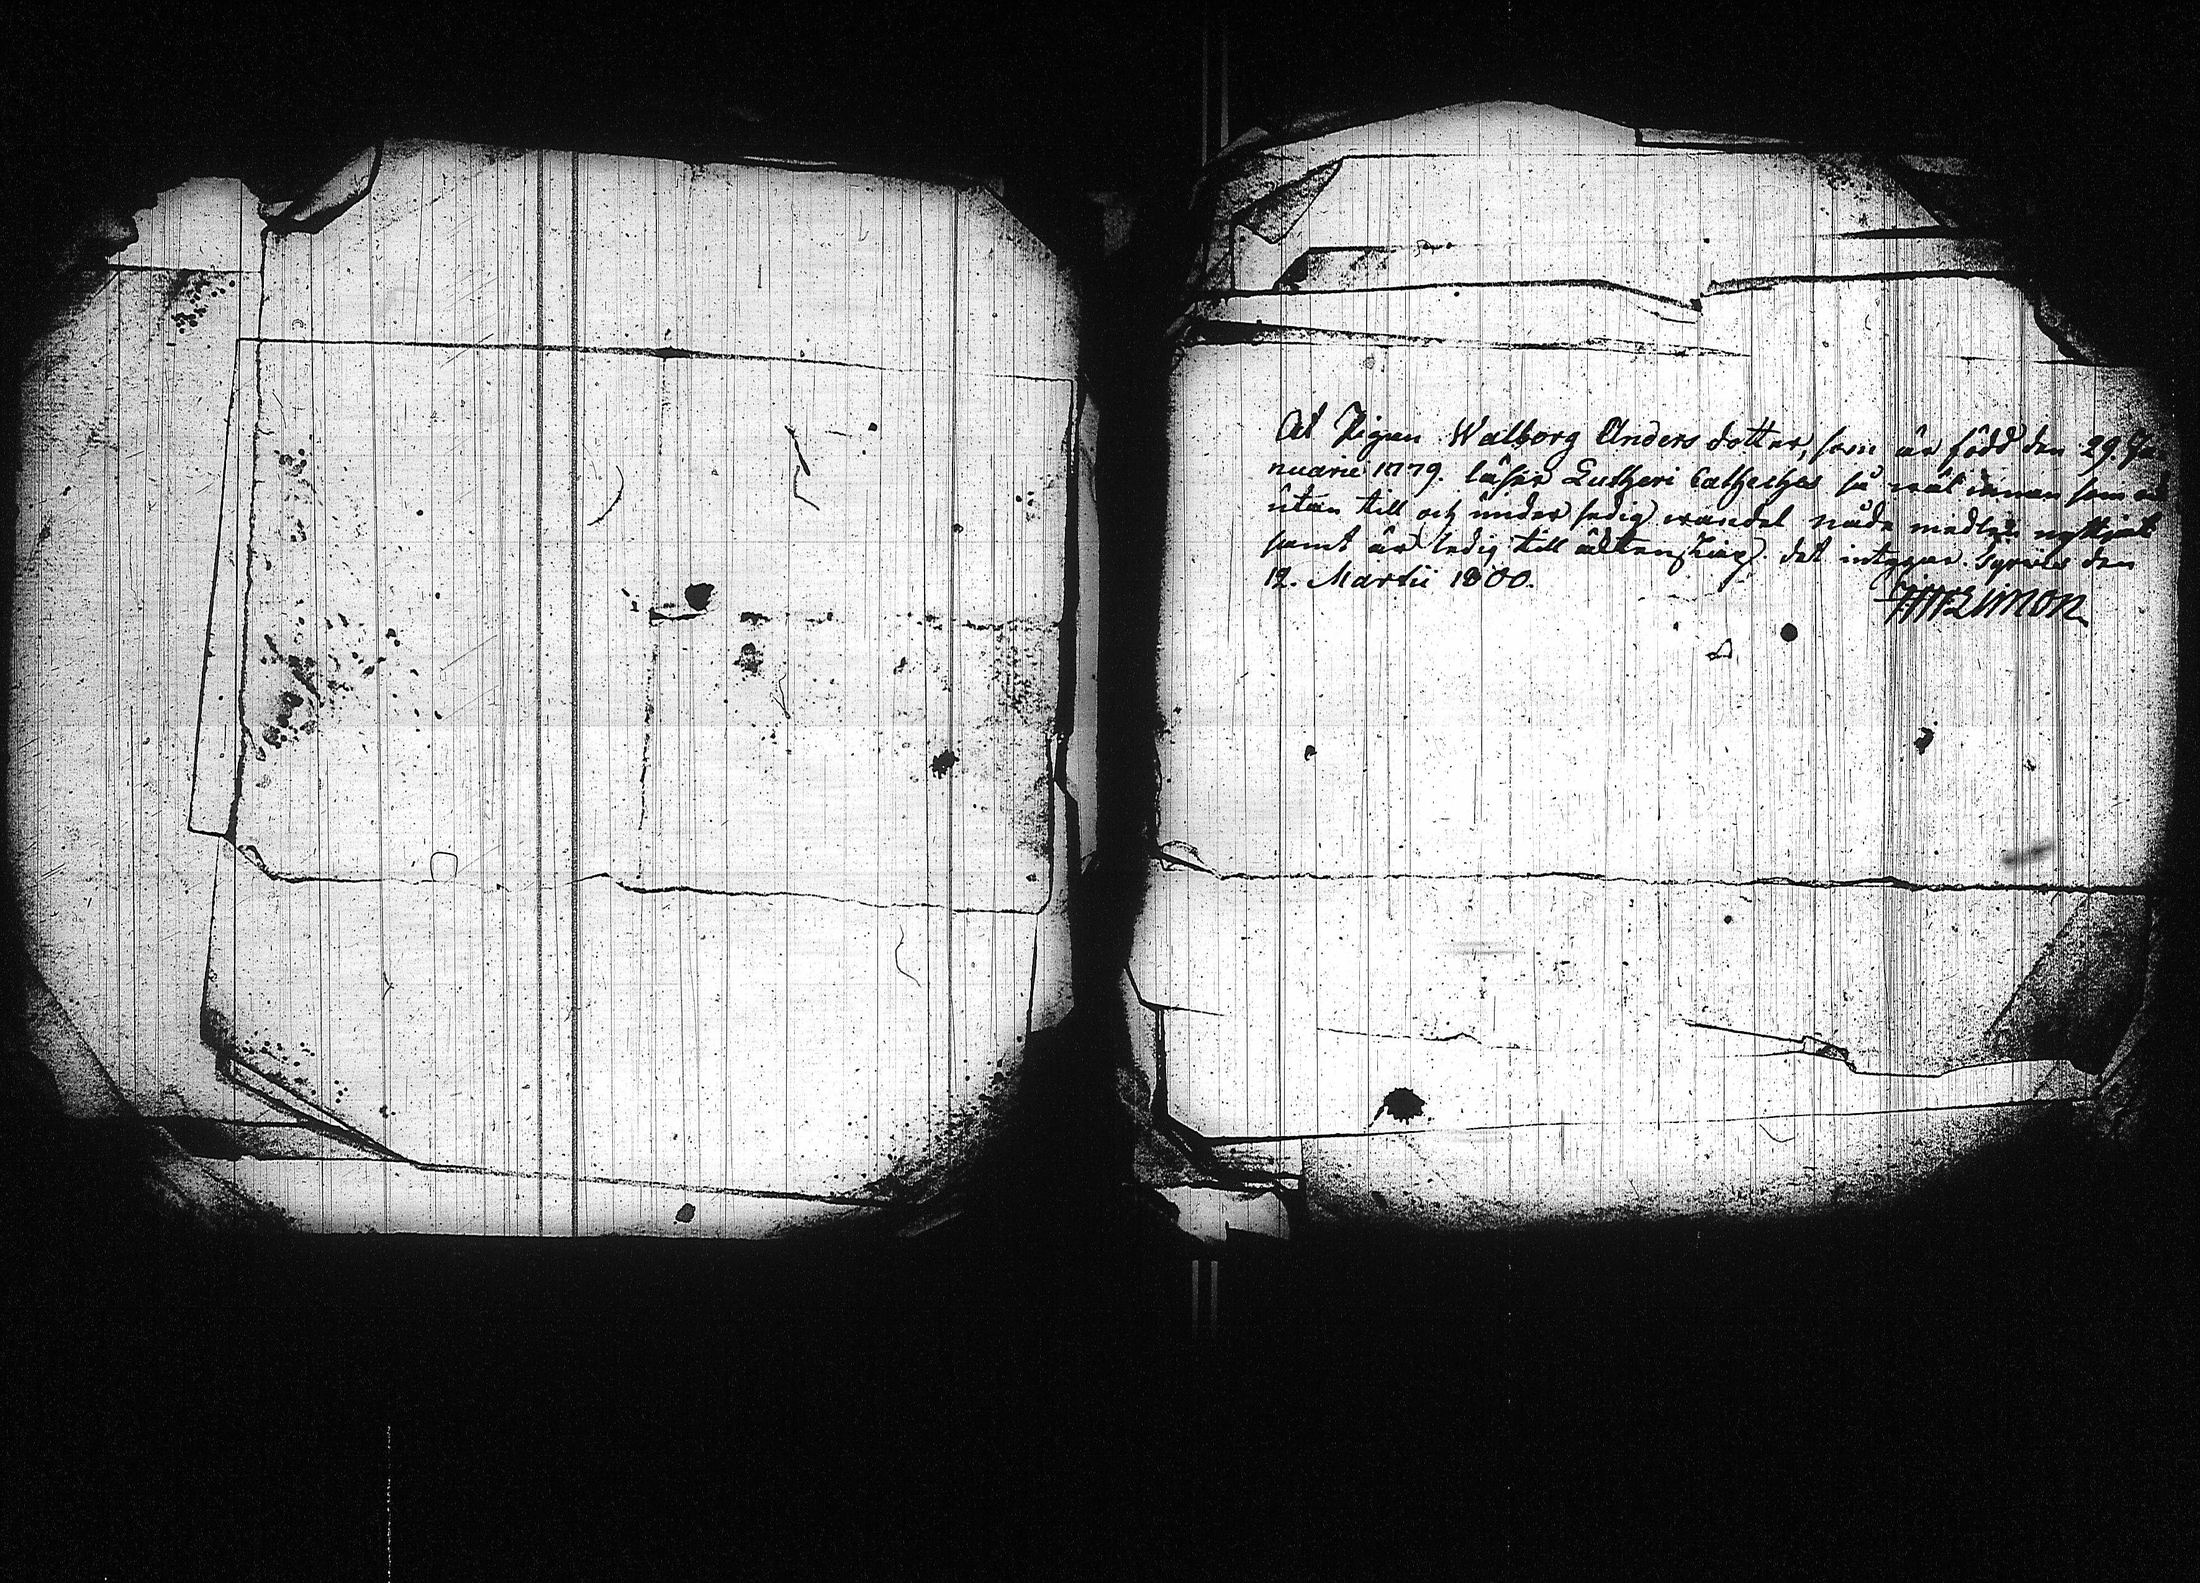 At Pigan Walborg Anders dotter, som är född den 29. Ja
nuarii 1779. läser Lutheri Catheches så wäl innan som
utan till och under sedig wandel nåde medlen nyttjat
samt är ledig till äcktenskap. det intygar. den
12. Martii 1800.